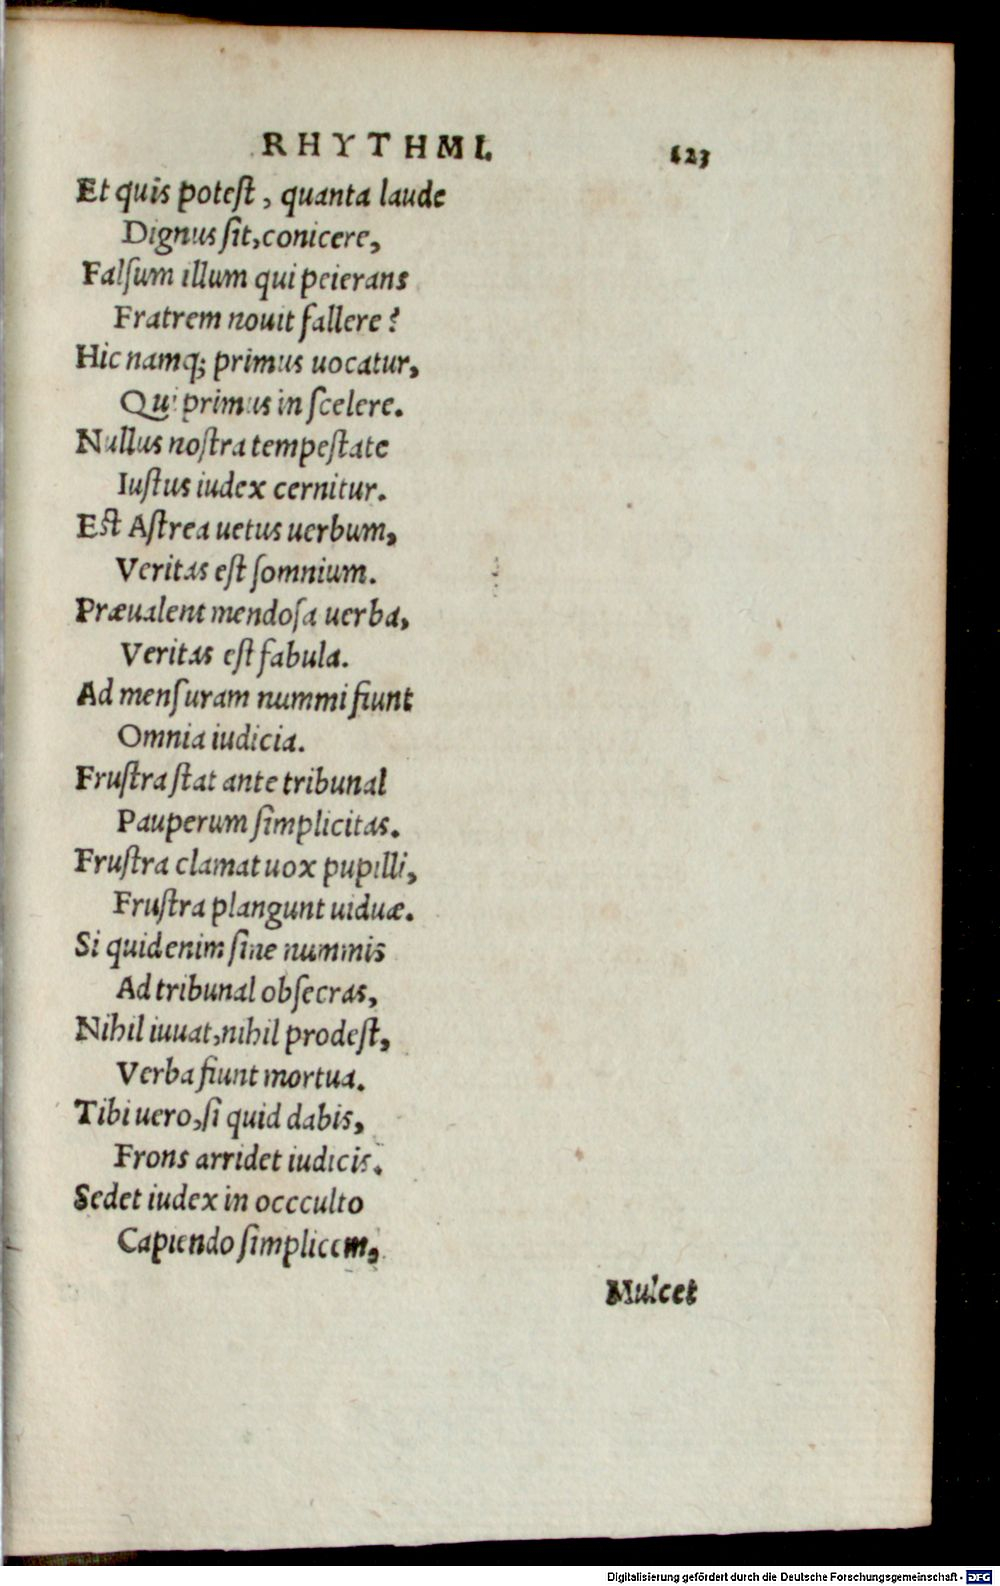 RHYTHMI. 123
Et quis poteſt, quanta laude
Dignus ſit, conicere,
Falſum illum qui peierans
Fratrem nouit fallere?
Hic namq; primus uocatur,
Qui primus in ſcelere.
Nullus noſtra tempeſtate
Iuſtus iudex cernitur.
Eſt Aſtrea uetus uerbum,
Veritas eſt ſomnium.
Præualent mendoſa uerba,
Veritas eſt fabula.
Ad menſuram nummi fiunt
Omnia iudicia.
Fruſtra ſtat ante tribunal
Pauperum ſimplicitas.
Fruſtra clamat uox pupilli,
Fruſtra plangunt uiduæ.
Si quid enim ſine nummis
Ad tribunal obſecras,
Nihil iuuat, nihil prodeſt,
Verba fiunt mortua.
Tibi uero, ſi quid dabis,
Frons arridet iudicis.
Sedet iudex in occculto
Capiendo ſimplicem,
Mulcet
Digitalisierung gefördert durch die Deutsche Forschungsgemeinschaft - DFG